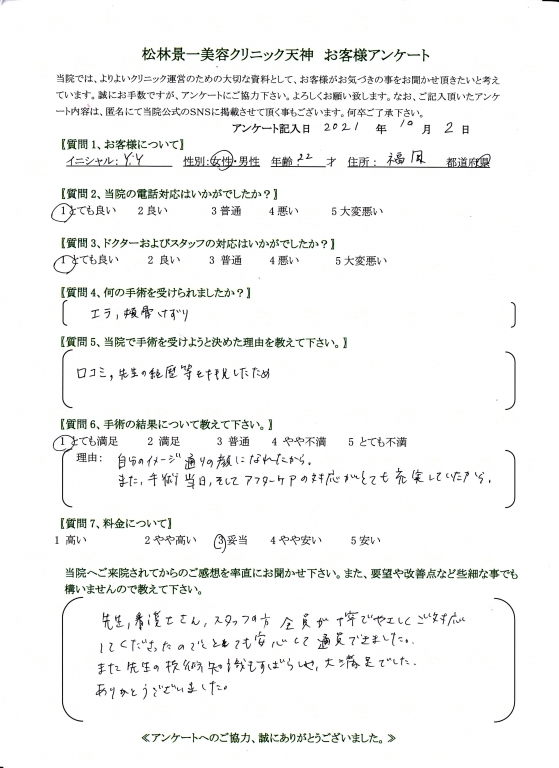 松林景一美容クリニック天神 お客様アンケート
当院では、よりよいクリニック運営のための大切な資料として、お客様がお気づきの事をお聞かせ頂きたいと考え
ています。誠にお手数ですが、アンケートにご協力下さい。よろしくお願い致します。なお、ご記入頂いたアンケ
ート内容は、匿名にて当院公式のSNSに掲載させて頂く事もございます。何卒ご了承下さい。
アンケート記入日 2021 年 10 月 2 日
【質問1、お客様について】
イニシャル: Y.Y 性別:女性・男性 年齢: 22 才 住所: 福岡 都道府県
【質問2、当院の電話対応はいかがでしたか？】
1とても良い 2 良い 3 普通 4 悪い 5 大変悪い
【質問3、ドクターおよびスタッフの対応はいかがでしたか？】
1とても良い 2 良い 3 普通 4 悪い 5 大変悪い
【質問4、何の手術を受けられましたか？】
エラ，頬骨けずり
【質問5、当院で手術を受けようと決めた理由を教えて下さい。】
口コミ，先生の経歴等を拝見したため
【質問6、手術の結果について教えて下さい。】
1とても満足 2 満足 3 普通 4 やや不満 5 とても不満
理由: 自分のイメージ通りの顔になれたから。
また，手術当日，そしてアフターケアの対応がとても充実していたから。
【質問7、料金について】
1 高い 2 やや高い 3 妥当 4 やや安い 5 安い
当院へご来院されてからのご感想を率直にお聞かせ下さい。また、要望や改善点など些細な事でも
構いませんので教えて下さい。
先生，看護士さん，スタッフの方 全員が丁寧でやさしくご対応
してくださったのでとても安心して通院できました。
また先生の技術知識もすばらしく，大満足でした。
ありがとうございました。
≪アンケートへのご協力、誠にありがとうございました。≫